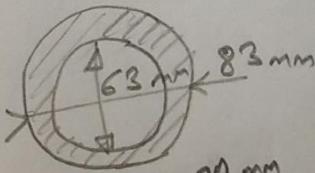 63 mm
83 mm
mm